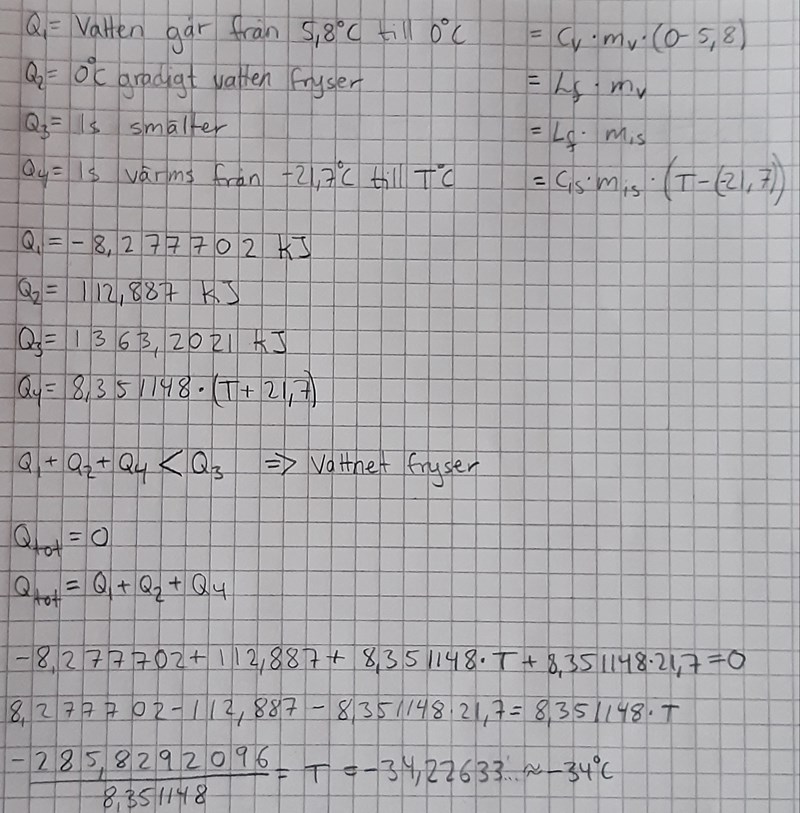 Q₁= Vatten går från 5,8°C till 0°C = Cᵥ·mᵥ·(0-5,8)
Q₂= 0°C gradigt vatten fryser = Lf · mᵥ
Q₃= Is smälter = Lf · mis
Q4= Is värms från -21,7°C till T°C = Cis·mis·(T-(-21,7))
Q₁= -8,277702 kJ
Q₂= 112,887 kJ
Q₃= 1363,2021 kJ
Q4= 8,351148·(T+21,7)
Q₁+Q₂+Q4 < Q₃ => Vattnet fryser
Qtot=0
Qtot= Q₁+Q₂+Q4
-8,277702+112,887+8,351148·T+8,351148·21,7=0
8,277702-112,887-8,351148·21,7=8,351148·T
-285,8292096/8,351148 = T =-34,22633..≈-34°C